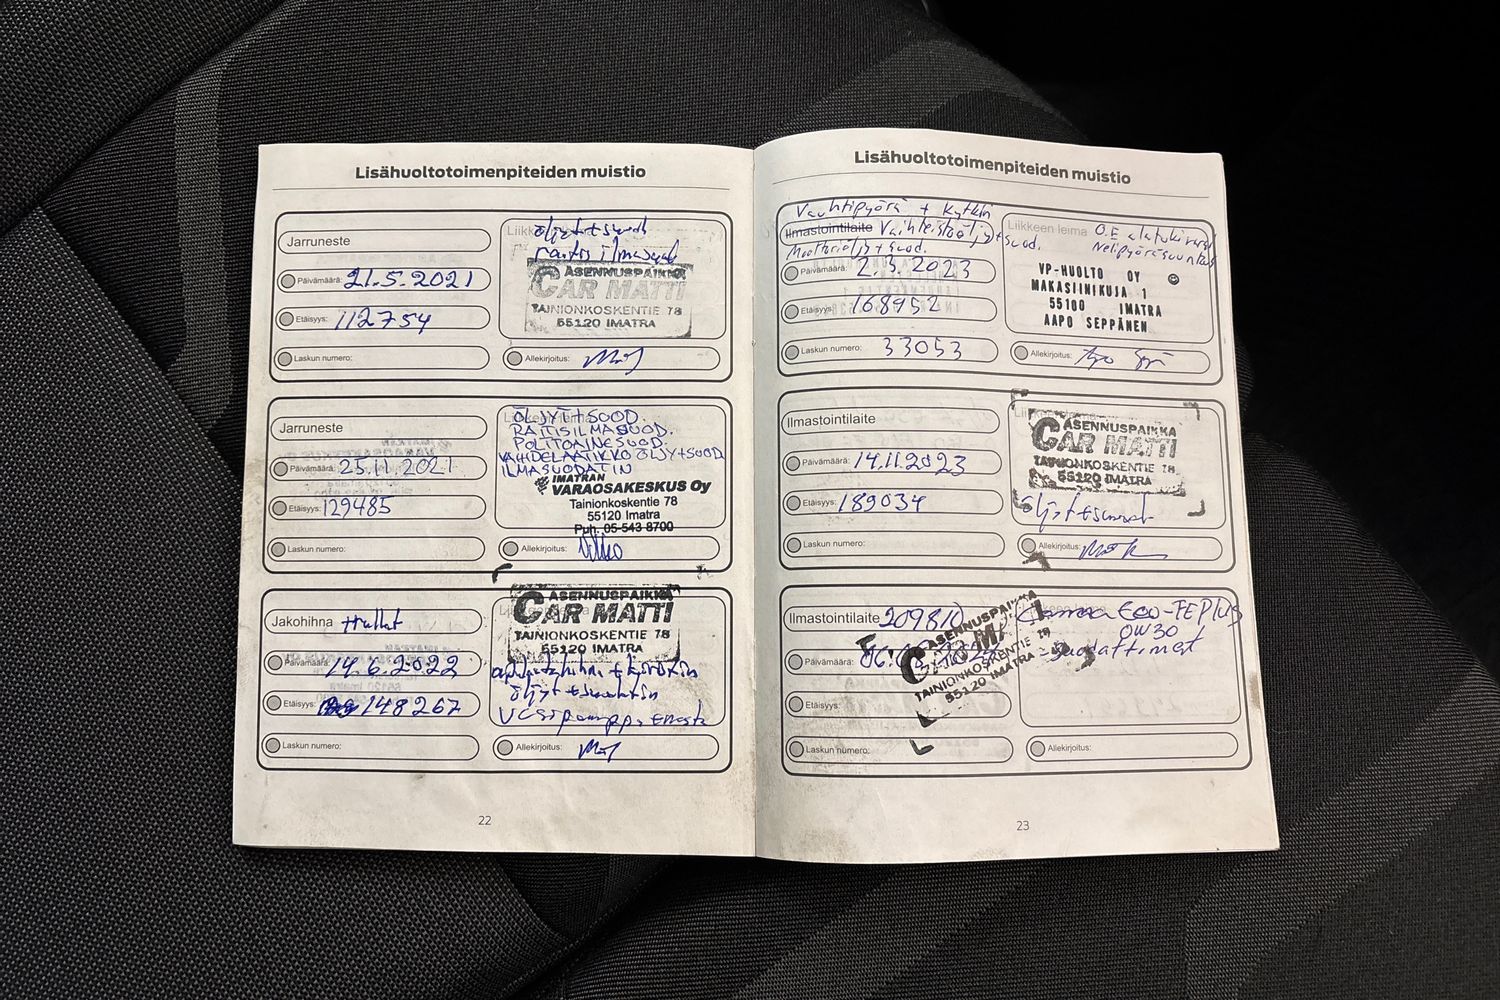 Lisähuoltotoimenpiteiden muistio
Jarruneste
Päivämäärä: 21.5.2021
Etäisyys: 112754
Laskun numero:
öljyt + suod
raitis ilmasuod
ASENNUSPAIKKA
CAR MATTI
TAINIONKOSKENTIE 78
55120 IMATRA
Allekirjoitus:
Jarruneste
Päivämäärä: 25.11.2021
Etäisyys: 129485
Laskun numero:
ÖLJYT+SUOD.
RAITISILMASUOD.
POLTTOAINESUOD.
VAIHDELAATIKKO ÖLJY+SUOD
ILMASUODATIN
IMATRAN
VARAOSAKESKUS Oy
Tainionkoskentie 78
55120 Imatra
Puh. 05-543 8700
Allekirjoitus:
Jakohihna
Päivämäärä: 14.6.2022
Etäisyys: 148267
Laskun numero:
ASENNUSPAIKKA
CAR MATTI
TAINIONKOSKENTIE 78
55120 IMATRA
öljyt +
Allekirjoitus:
22
Lisähuoltotoimenpiteiden muistio
Vauhtipyörä + kytkin
Ilmastointilaite Vaihteistoöljy+suod.
Moottoriöljy + suod.
Päivämäärä: 2.3.2023
Etäisyys: 168952
Laskun numero: 33053
Liikkeen leima
O.E alatukivarsi
Nelipyöräsuuntaus
VP-HUOLTO OY
MAKASIINIKUJA 1
55100 IMATRA
AAPO SEPPÄNEN
Allekirjoitus:
Ilmastointilaite
Päivämäärä: 14.11.2023
Etäisyys: 189034
Laskun numero:
ASENNUSPAIKKA
CAR MATTI
TAINIONKOSKENTIE 78
55120 IMATRA
öljyt + suodat
Allekirjoitus:
Ilmastointilaite 209810
Päivämäärä:
Etäisyys:
Laskun numero:
ASENNUSPAIKKA
CAR MATTI
TAINIONKOSKENTIE 78
55120 IMATRA
Eco-FE Plus
0W30
suodattimet
Allekirjoitus:
23